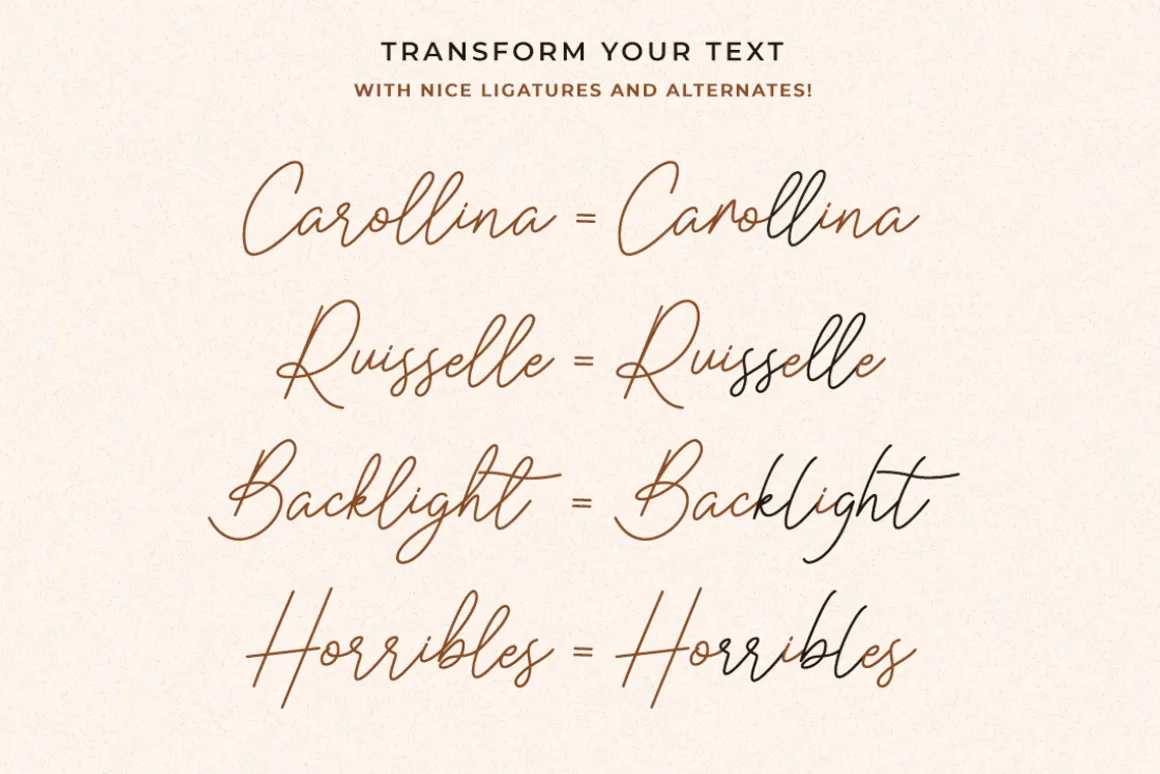 TRANSFORM YOUR TEXT
WITH NICE LIGATURES AND ALTERNATES!
Carollina = Carollina
Ruisselle = Ruisselle
Backlight = Backlight
Horribles = Horribles